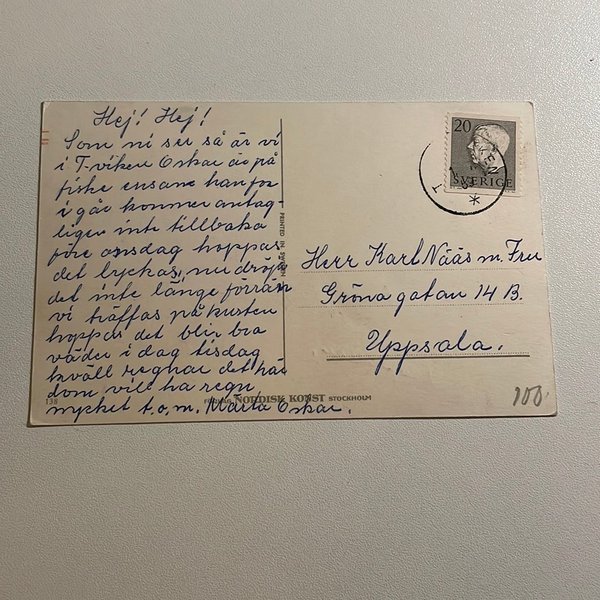 Hej! Hej!
Som ni ser så är vi
i T-viken Oskar är på
fiske ensam han for
i går kommer antag-
ligen inte tillbaka
före onsdag hoppas
det lyckas, nu dröj
det inte länge förrän
vi träffas på kusten
hoppas det blir bra
väder i dag tisdag
kväll regnar det här
dom vill ha regn
mycket t.o.m. Märta Oskar.
138
PRINTED IN
NORDISK KONST STOCKHOLM
20
SVERIGE
Herr Karl Nääs m. Fru
Gröna gatan 14 B.
Uppsala.
100.